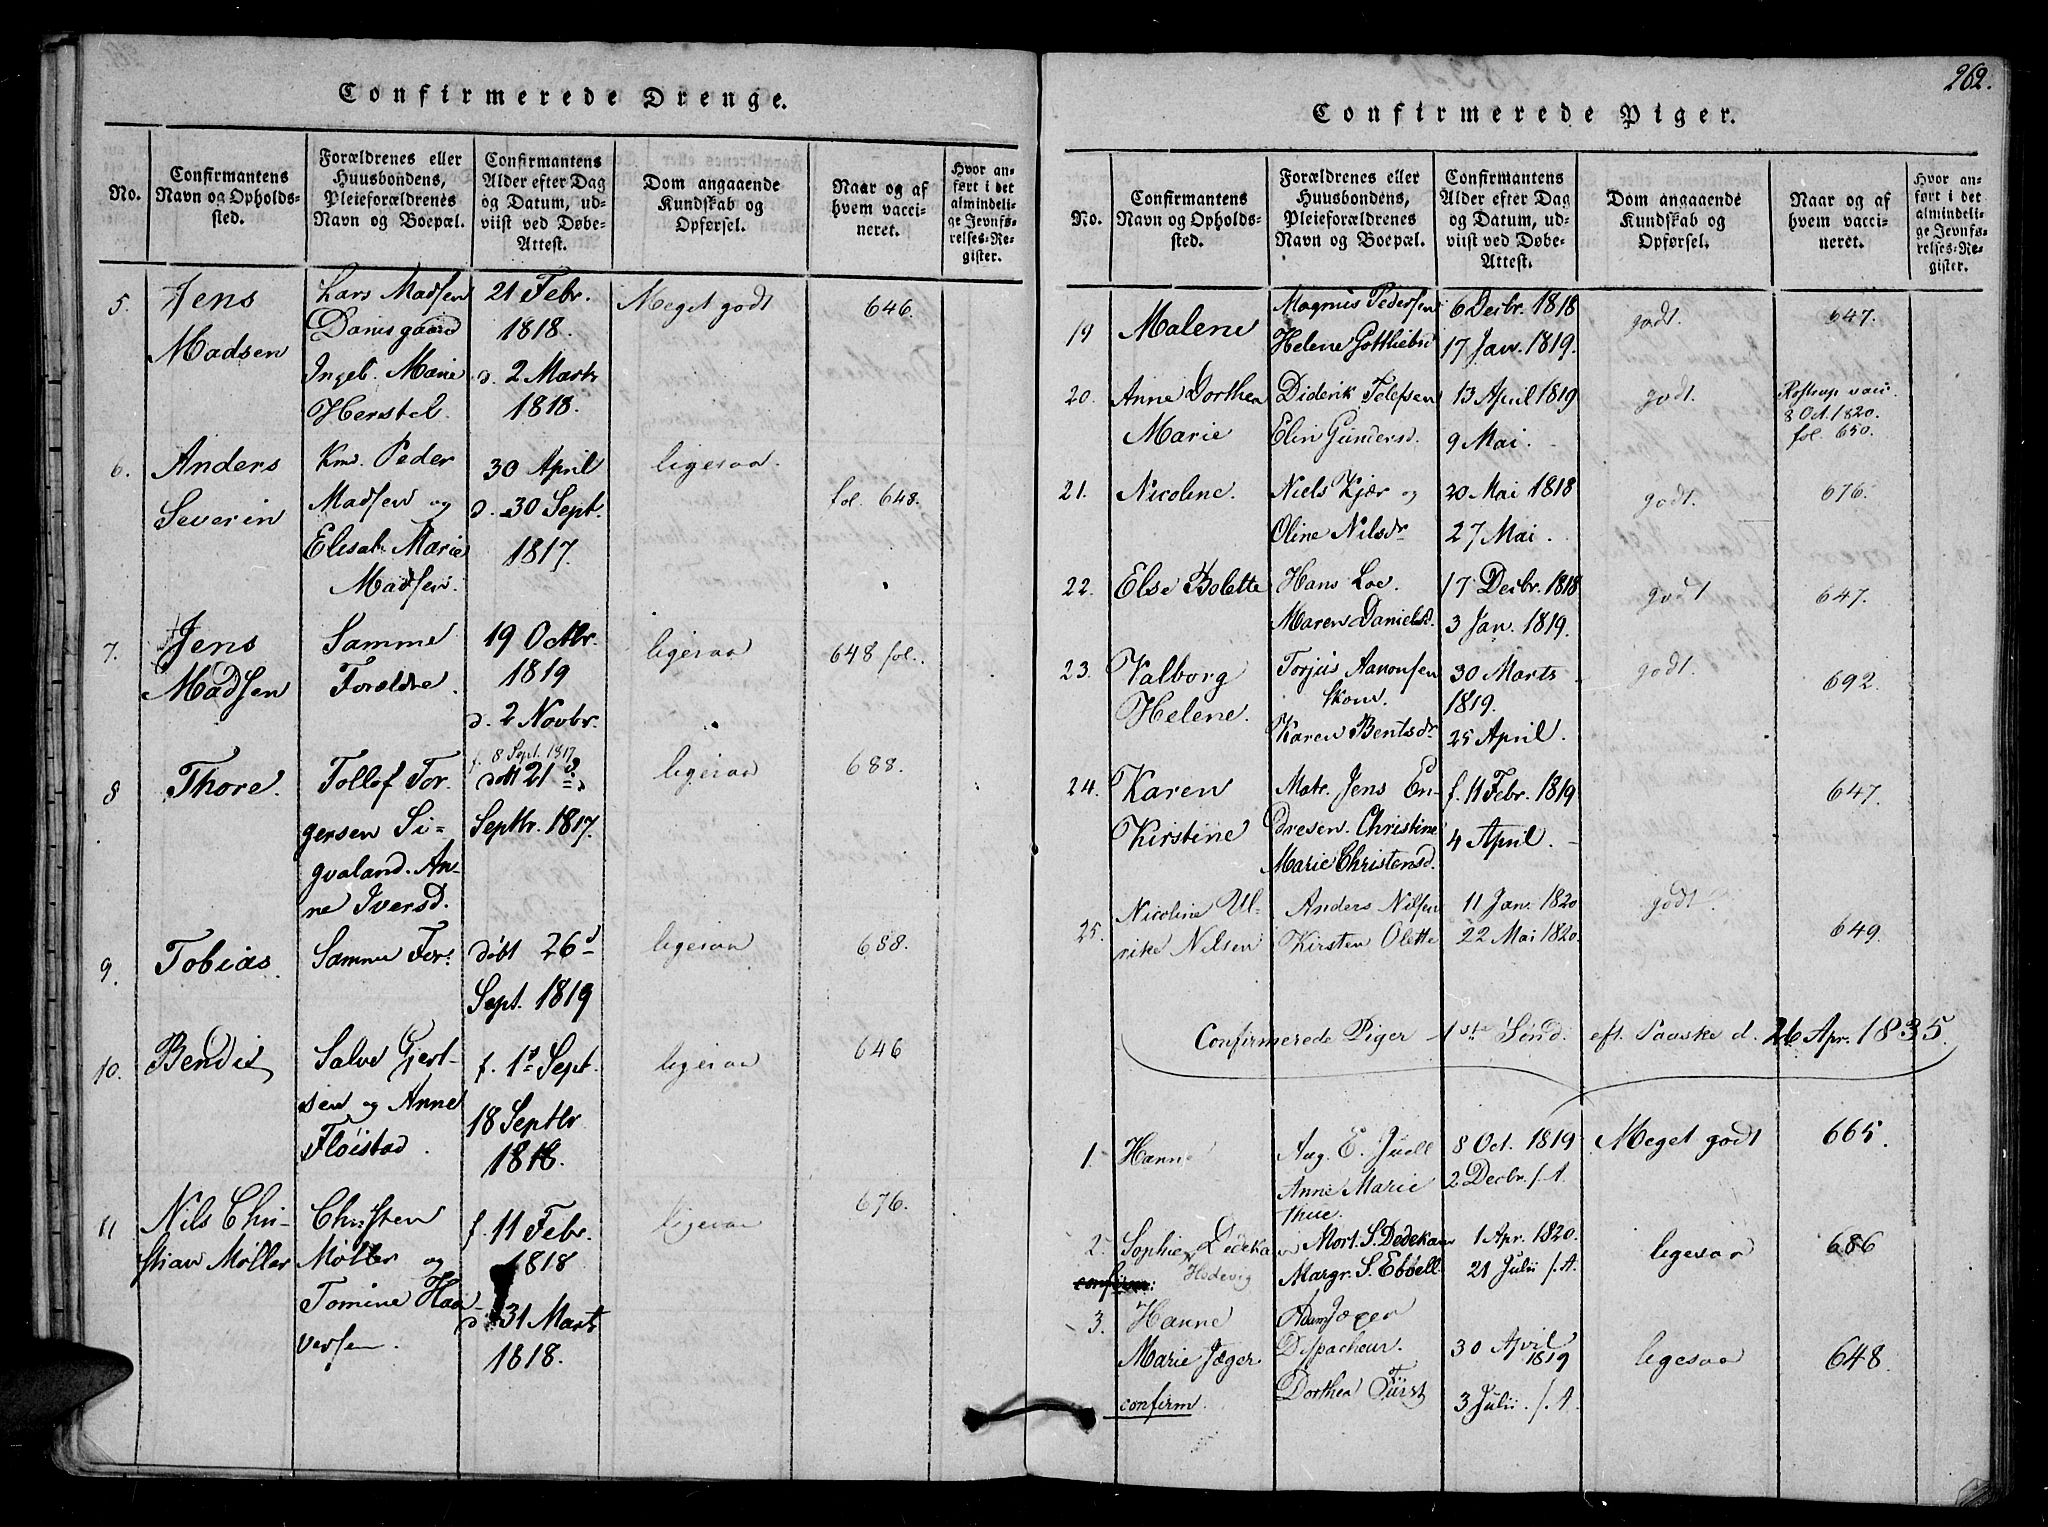 Confirmerede Drenge.
No.
Confirmantens
Navn og Opholds-
sted.
Forældrenes eller
Huusbondens,
Pleieforældrenes
Navn og Boepæl.
Confirmantens
Alder efter Dag
og Datum, ud-
viist ved Døbe-
Attest.
Dom angaaende
Kundskab og
Opførsel.
Naar og af
hvem vacci-
neret.
Hvor an-
ført i det
almindeli-
ge Jevnfø-
relses-Re-
gister.
5. Jens
Madsen
Lars Madsen
Danisgaard
Ingeb. Marie
Herstel.
21 Febr.
1818.
d. 2 Marts
1818.
Meget godt
646.
6. Anders
Severin
Km. Peder
Madsen og
Elisab. Marie
Madsen.
30 April
d. 30 Sept.
1817.
ligesaa.
fol. 648.
7. Jens
Madsen
Samme
Forældre.
19 Octbr.
1819
d. 2 Novbr.
ligesaa
648 fol.
8 Thore.
Tollof Tor.
gersen Si-
gvaland. An-
ne Iversd.
f. 8 Sept. 1817
døbt 21d
Septbr. 1817.
ligesaa
688.
9. Tobias.
Samme For.
døbt 26d
Sept. 1819
ligesaa
688.
10. Bendix
Salve Gjert-
sen og Anne
Fløistad.
f. 1d Sept.
18 Septbr
1818.
ligesaa
646
11 Nils Chri-
stian Møller
Christen
Møller og
Tomine Haa-
versen.
f. 11 Febr.
1818
d. 31 Marts
1818.
ligesaa
676.
262.
Confirmerede Piger.
No.
Confirmantens
Navn og Opholds-
sted.
Forældrenes eller
Huusbondens,
Pleieforældrenes
Navn og Boepæl.
Confirmantens
Alder efter Dag
og Datum, ud-
viist ved Døbe-
Attest.
Dom angaaende
Kundskab og
Opførsel.
Naar og af
hvem vacci-
neret.
Hvor an-
ført i det
almindeli-
ge Jevnfø-
relses-Re-
gister.
19 Malene
Magnus Pedersen
Helene Gottliebsd
6 Decbr. 1818
17 Jan. 1819.
godt.
647.
20. Anne Dorthea
Marie
Diderik Telefsen
Elin Gundersd.
13 April 1819
9 Mai.
godt.
Rostrup vacc.
8 Oct. 1820.
fol. 650.
21. Nicoline.
Niels Kjær og
Oline Nilsdr
20 Mai 1818
27 Mai.
godt.
676.
22. Else Bolette
Hans Loe.
Maren Danielsd.
17 Decbr. 1818
3 Jan. 1819.
godt
647.
23. Valborg
Helene.
Torjus Aanonsen
Skom.
Karen Bentsdr
30 Marts
1819.
25 April.
godt.
692.
24. Karen
Kirstine
Matr. Jens En-
dresen. Christine
Marie Christensd.
f. 11 Febr. 1819
4 April.
647.
25. Nicoline Ul-
rike Nilsen
Anders Nilsen
Kirsten Olette
11 Jan. 1820
22 Mai 1820.
godt.
649.
Confirmerede Piger 1ste Sønd. eft. Paaske d. 26 Apr. 1835.
1. Hanne
Aug. E. Juell
Anne Marie
Thue.
8 Oct. 1819
2 Decbr. f. A.
Meget godt
665.
2. Sophie Dedeka
Hedevig
Mort. S. Dedekam
Margr. S. Ebbell
1 Apr. 1820.
21 Julii f. A.
ligesaa
686
confirm:
3. Hanne
Marie Jæger
confirm.
Adam Jæger
Dispacheur.
Dorthea Fürst
30 April
1819
3 Julii. f. A.
ligesaa
648.